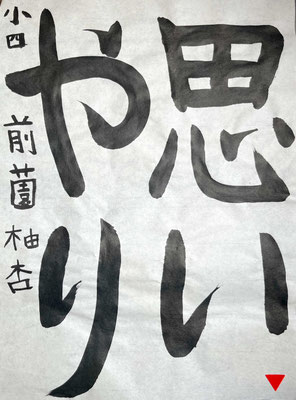 思い
やり
小四 前薗 柚杏